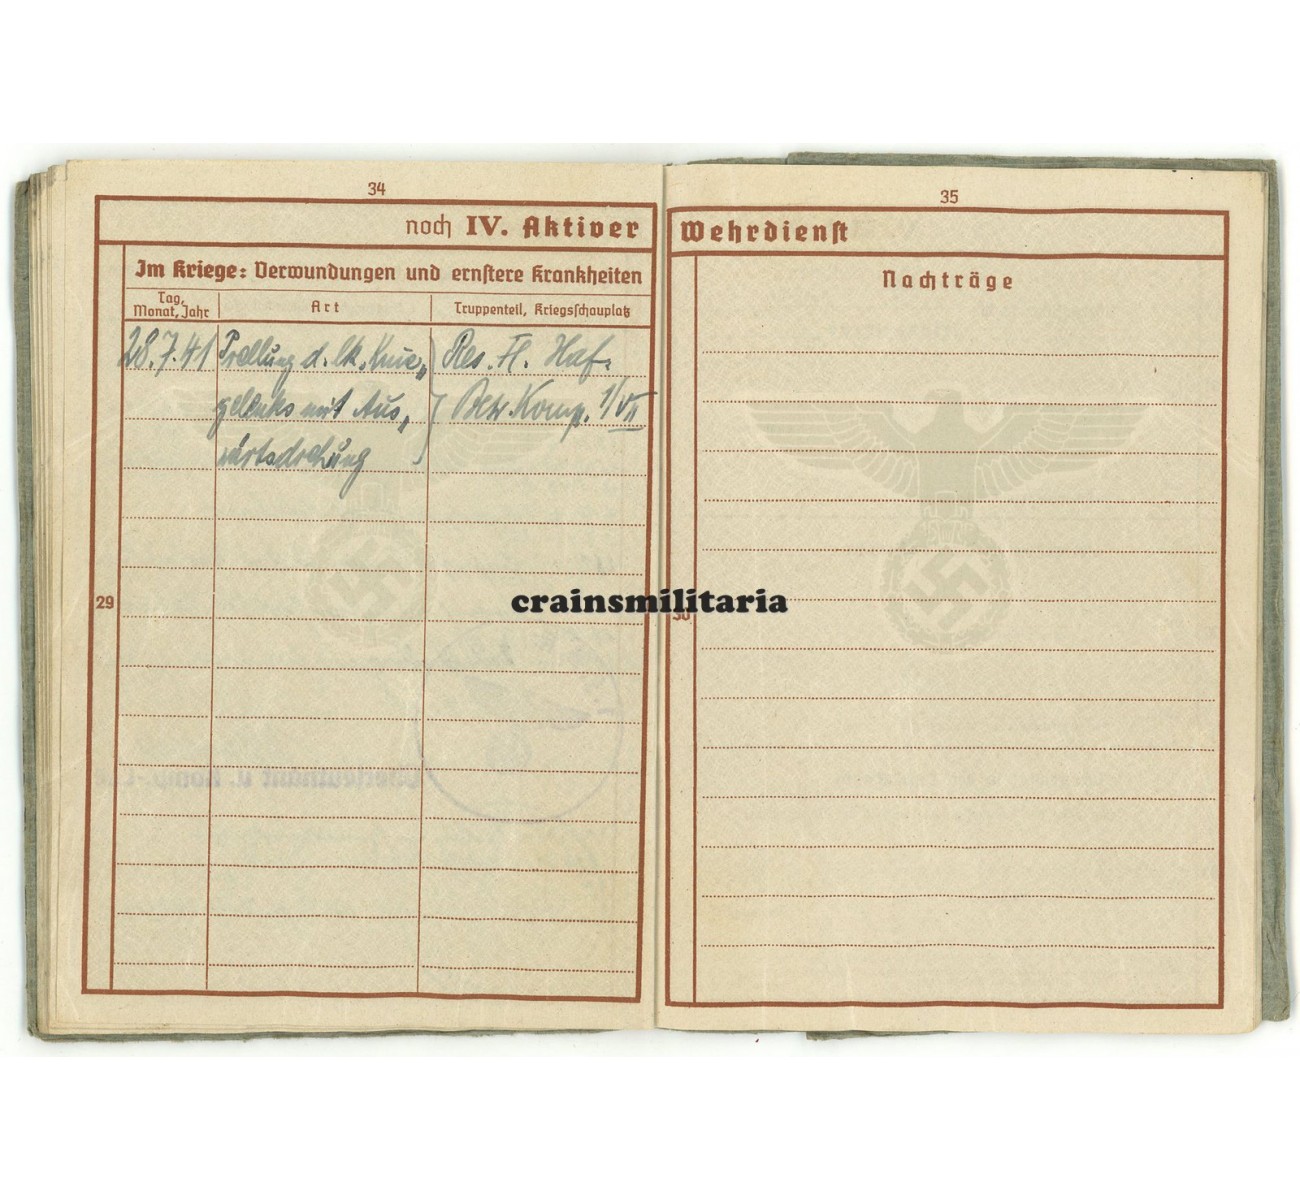 34
noch IV. Aktiver
Im Kriege: Verwundungen und ernstere Krankheiten
Tag, Monat, Jahr
Art
Truppenteil, Kriegsschauplatz
28.7.41 Prellung d. lk. Knie„ Res. Fl. Haf-
gelenks mit Aus„ Betr. Komp. 1/VII
wärtsdrehung
29
crainsmilitaria
35
Wehrdienst
Nachträge
30